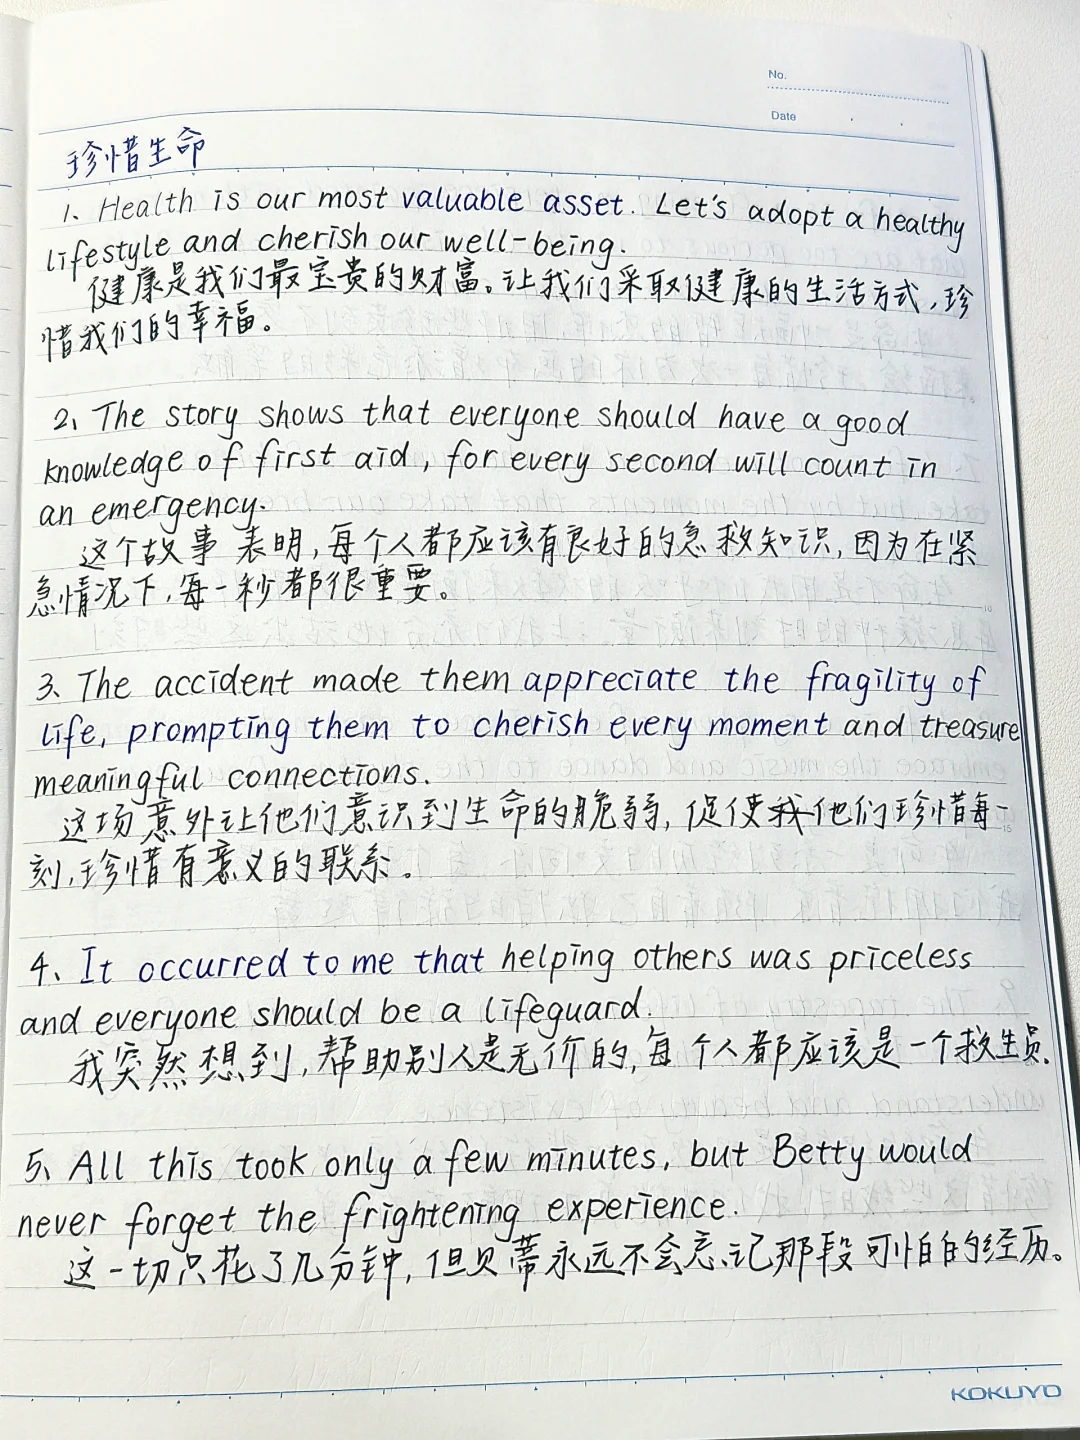 No.
Date
珍惜生命
1、Health is our most valuable asset. Let's adopt a healthy
lifestyle and cherish our well-being.
健康是我们最宝贵的财富。让我们采取健康的生活方式，珍
惜我们的幸福。
2、The story shows that everyone should have a good
knowledge of first aid, for every second will count in
an emergency.
这个故事表明，每个人都应该有良好的急救知识，因为在紧
急情况下，每一秒都很重要。
3、The accident made them appreciate the fragility of
life, prompting them to cherish every moment and treasure
meaningful connections.
这场意外让他们意识到生命的脆弱，促使他们珍惜每一
刻，珍惜有意义的联系。
4、It occurred to me that helping others was priceless
and everyone should be a lifeguard.
我突然想到，帮助别人是无价的，每个人都应该是一个救生员.
5、All this took only a few minutes, but Betty would
never forget the frightening experience.
这一切只花了几分钟，但贝蒂永远不会忘记那段可怕的经历。
KOKUYO